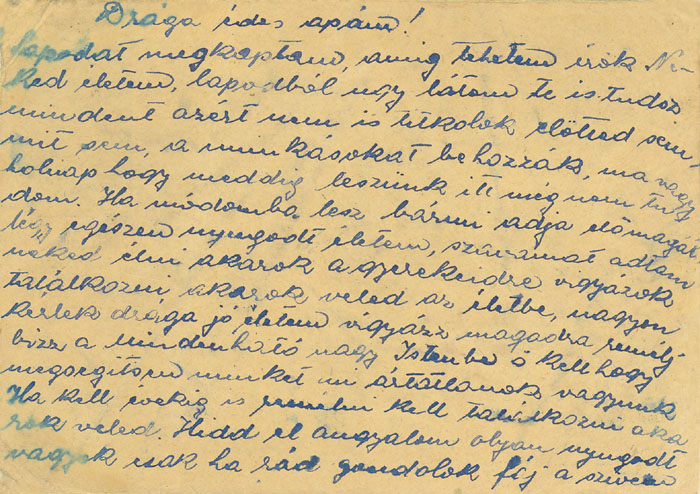 Drága édes apám!
lapodat megkaptam, amig tehetem irok Ne-
ked életem, lapodból ugy látom te is tudsz
mindent azért nem is titkolok előtted sem-
mit sem, a munkásokat behozzák, ma vagy
holnáp hogy meddig leszünk itt még nem tu
dom. Ha módomba lesz bármi adja elömagát
légy egészen nyugodt életem, szavamat adtam
neked élni akarok a gyerekeidre vigyázok
találkozni akarok veled az életbe, nagyon
kérlek drága jó életem vigyázz magadra remélj
bizz a mindenható nagy Istenbe ő kell hogy
megsegitsen minket mi ártatlanok vagyunk
Ha kell évekig is remélni kell találkozni aka
rok veled. Hidd el angyalom olyan nyugodt
vagyok csak ha rád gondolok fáj a szivem